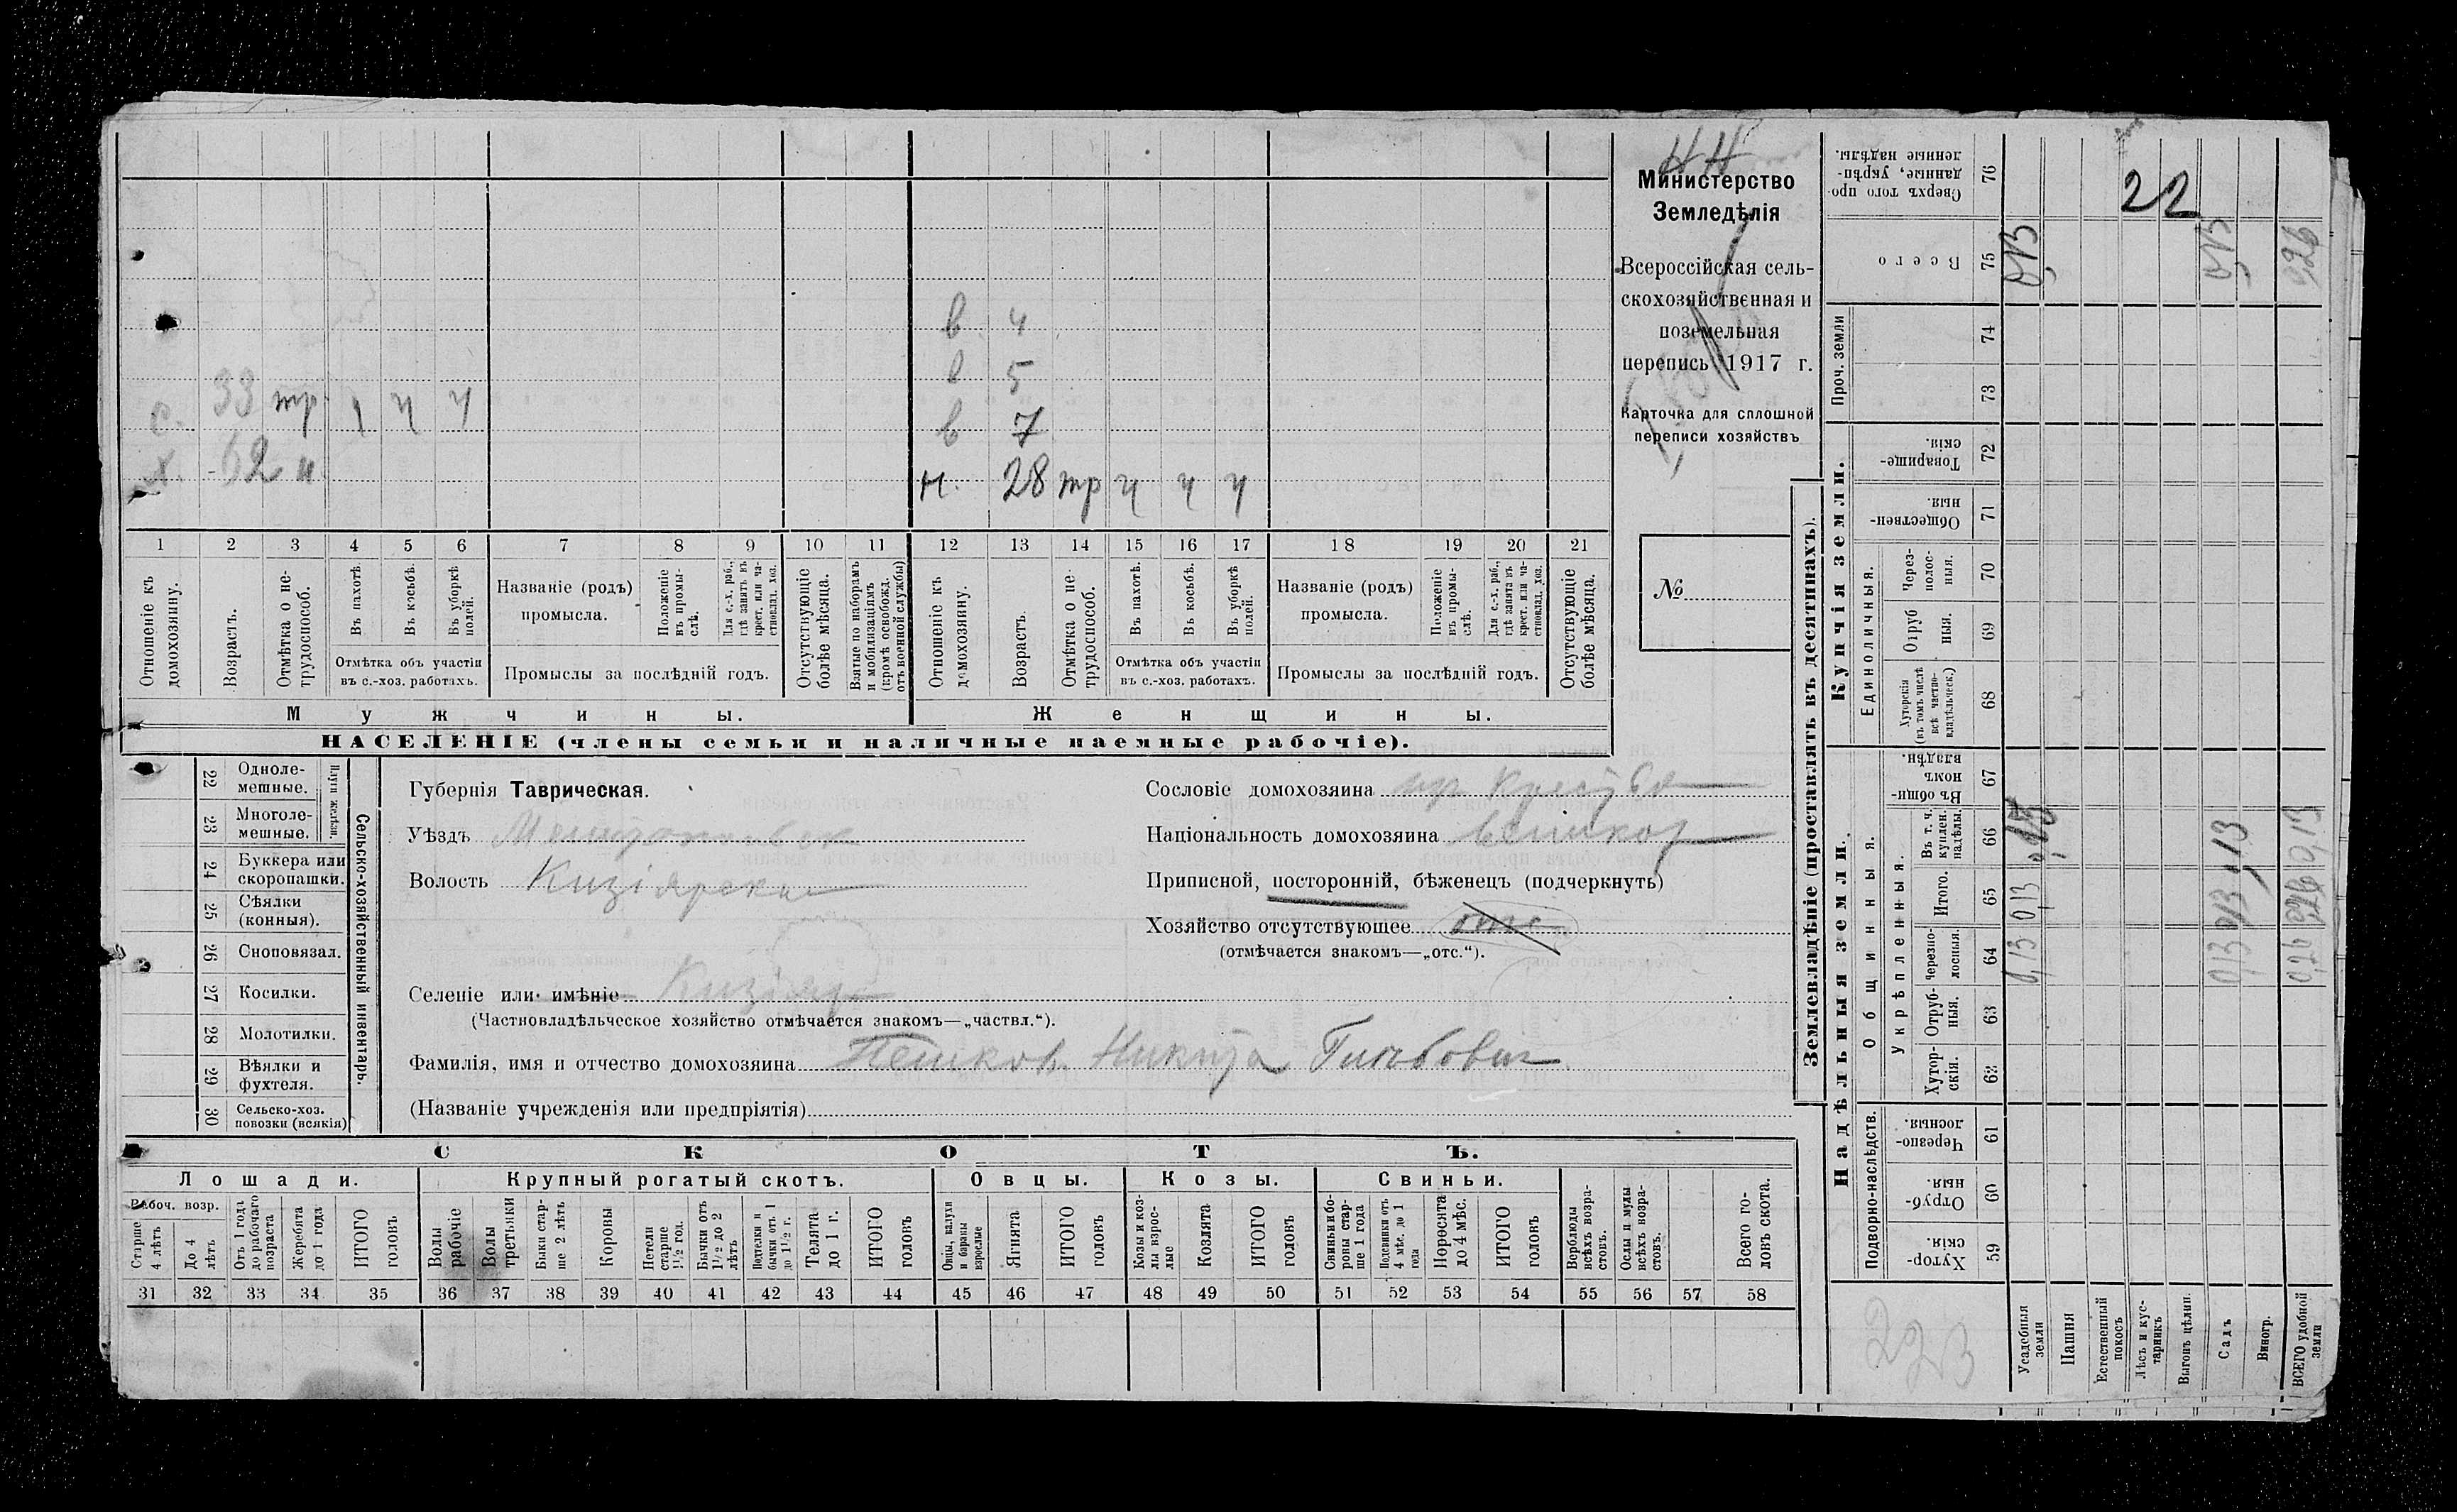 Министерство
Земледѣлія
Всероссійская сель-
скохозяйственная и
поземельная
перепись 1917 г.
Карточка для сплошной
переписи хозяйствъ
№
в 4
в 5
с. 33 тр ч ч ч
в 7
х. 62 н
н. 28 тр ч ч ч
1 2 3 4 5 6 7 8 9 10 11 12 13 14 15 16 17 18 19 20 21
Отношеніе къ домохозяину.
Возрастъ.
Отмѣтка о не-трудоспособ.
Въ пахотѣ.
Въ косьбѣ.
Въ уборкѣ полей.
Отмѣтка объ участіи
въ с.-хоз. работахъ.
Названіе (родъ)
промысла.
Положеніе въ промы-слѣ.
Для с.-х. раб., гдѣ занятъ въ крест. или ча-стновлад. хоз.
Промыслы за послѣдній годъ.
Отсутствующіе болѣе мѣсяца.
Взятые по наборамъ и мобилизаціямъ (кромѣ освобожд. отъ военной службы)
Отношеніе къ домохозяину.
Возрастъ.
Отмѣтка о не-трудоспособ.
Въ пахотѣ.
Въ косьбѣ.
Въ уборкѣ полей.
Отмѣтка объ участіи
въ с.-хоз. работахъ.
Названіе (родъ)
промысла.
Положеніе въ промы-слѣ.
Для с.-х. раб., гдѣ занята въ крест. или ча-стновлад. хоз.
Промыслы за послѣдній годъ.
Отсутствующіе болѣе мѣсяца.
Мужчины.
Женщины.
НАСЕЛЕНІЕ (члены семьи и наличные наемные рабочіе).
Сельско-хозяйственный инвентарь.
Плуги желѣзн.
22 Одноле-мешные.
23 Многоле-мешные.
24 Буккера или скоропашки.
25 Сѣялки (конныя).
26 Сноповязал.
27 Косилки.
28 Молотилки.
29 Вѣялки и фухтеля.
30 Сельско-хоз. повозки (всякія)
Губернія Таврическая.
Уѣздъ Мелитопольск
Волость Кизіярская
Селеніе или имѣніе Кизіяр
(Частновладѣльческое хозяйство отмѣчается знакомъ—„частвл.“).
Фамилія, имя и отчество домохозяина Пешков Никита Глѣбович
(Названіе учрежденія или предпріятія)
Сословіе домохозяина
Національность домохозяина великор
Приписной, посторонній, бѣженецъ (подчеркнуть)
Хозяйство отсутствующее отс
(отмѣчается знакомъ—„отс.“).
СКОТЪ.
Лошади.
Крупный рогатый скотъ.
Овцы.
Козы.
Свиньи.
Рабоч. возр.
Старше 4 лѣтъ
До 4 лѣтъ
Отъ 1 года до рабочаго возраста
Жеребята до 1 года
ИТОГО головъ
Волы рабочіе
Волы третьяки
Быки стар-ше 2 лѣтъ
Коровы
Нетели старше 1½ год.
Бычки отъ 1½ до 2 лѣтъ
Подтелки и бычки отъ 1 до 1½ г.
Телята до 1 г.
ИТОГО головъ
Овцы, валухи и бараны взрослые
Ягнята
ИТОГО головъ
Козы и коз-лы взрос-лые
Козлята
ИТОГО головъ
Свиньи и бо-ровы стар-ше 1 года
Подсвинки отъ 4 мѣс. до 1 года
Поросята до 4 мѣс.
ИТОГО головъ
Верблюды всѣхъ возра-стовъ.
Ослы и мулы всѣхъ возра-стовъ.
Всего го-ловъ скота.
31 32 33 34 35 36 37 38 39 40 41 42 43 44 45 46 47 48 49 50 51 52 53 54 55 56 57 58
Землевладѣніе (проставлять въ десятинахъ).
Надѣльныя земли.
Купчія земли.
Проч. земли
Подворно-наслѣдств.
Общинныя.
Укрѣпленныя.
Единоличныя.
Хутор-скія. 59
Отруб-ныя. 60
Черезпо-лосныя. 61
Хутор-скія. 62
Отруб-ныя. 63
Черезпо-лосныя. 64
Итого. 65
Въ т. ч. куплен. надѣлы. 66
Въ общи-номъ владѣн. 67
Хуторскія (въ томъ числѣ всѣ частно-владѣльческ.) 68
Отруб-ныя. 69
Через-полос-ныя. 70
Обществен-ныя. 71
Товарище-скія. 72
73
74
Всего 75
Сверхъ того про-данные, укрѣп-ленные надѣлы. 76
Усадебныя земли 0,13 0,13 0,13 0,13
Пашня
Естественный покосъ
Лѣсъ и кус-тарникъ
Выгонъ цѣлин.
Садъ 0,13 0,13 0,13 0,13
Виногр.
ВСЕГО удобной земли 0,26 0,26 0,13 0,26
22
223